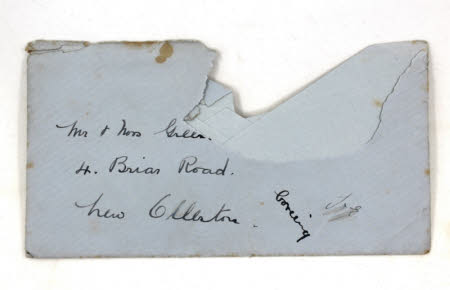 Mr & Mrs Green.
4. Briar Road.
New Ollerton.